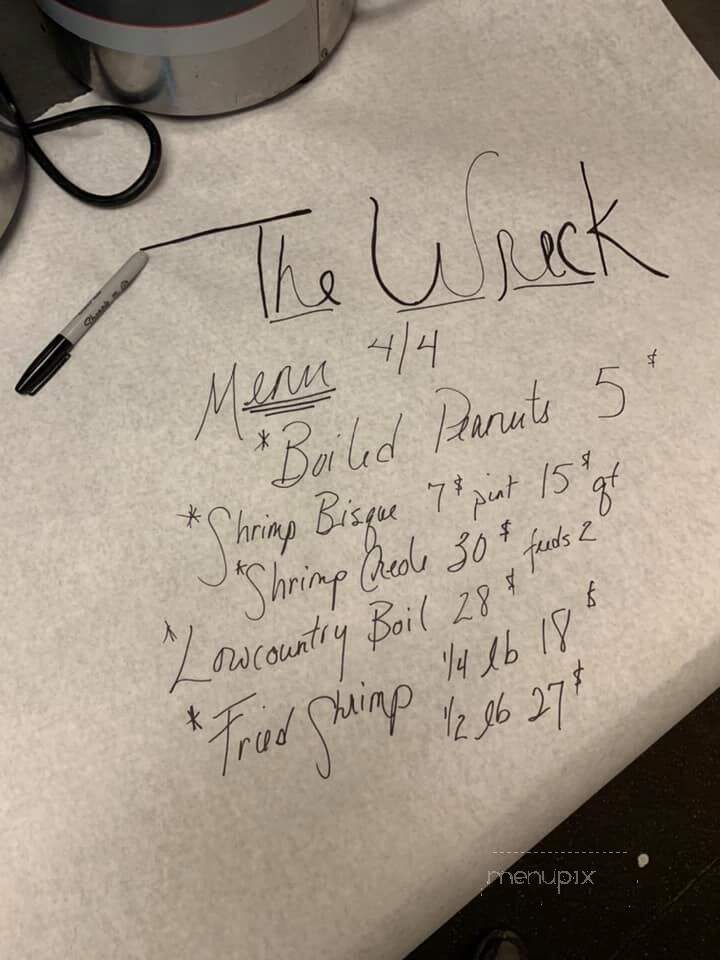 The Wreck
Menu 4/4
*Boiled Peanuts 5$
*Shrimp Bisque 7$ pint 15$ qt
*Shrimp Creole 30$ feeds 2
*Lowcountry Boil 28$
*Fried Shrimp 1/4 lb 18$
1/2 lb 27$
Sharpie
menupix